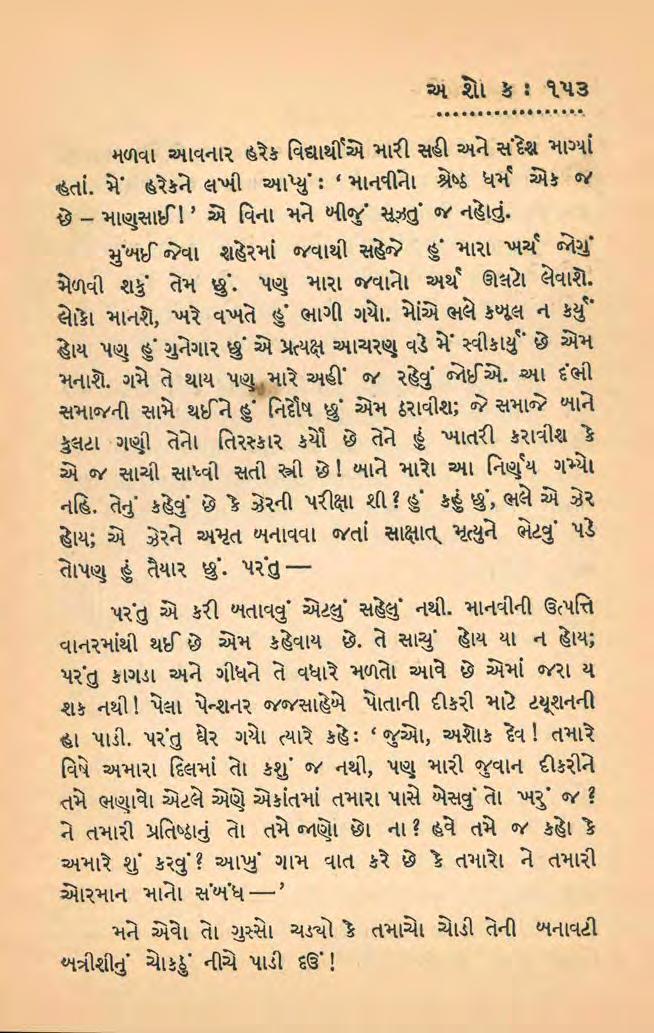 અ શો ક : ૧૫૩
મળવા આવનાર હરેક વિદ્યાર્થીએ મારી સહી અને સંદેશ માગ્યાં
હતાં. મેં હરેકને લખી આપ્યું : ‘ માનવીનો શ્રેષ્ઠ ધર્મ એક જ
છે – માણસાઈ! ’ એ વિના મને બીજું સૂઝતું જ નહોતું.
મુંબઈ જેવા શહેરમાં જવાથી સહેજે હું મારા ખર્ચ જોગું
મેળવી શકું તેમ છું. પણ મારા જવાનો અર્થ ઊલટો લેવાશે.
લોકો માનશે, ખરે વખતે હું ભાગી ગયો. મોંએ ભલે કબૂલ ન કર્યું
હોય પણ હું ગુનેગાર છું એ પ્રત્યક્ષ આચરણ વડે મેં સ્વીકાર્યું છે એમ
મનાશે. ગમે તે થાય પણ મારે અહીં જ રહેવું જોઈએ. આ દંભી
સમાજની સામે થઈને હું નિર્દોષ છું એમ ઠરાવીશ; જે સમાજે બાને
કુલટા ગણી તેનો તિરસ્કાર કર્યો છે તેને હું ખાતરી કરાવીશ કે
એ જ સાચી સાધ્વી સતી સ્ત્રી છે! બાને મારો આ નિર્ણય ગમ્યો
નહિ. તેનું કહેવું છે કે ઝેરની પરીક્ષા શી? હું કહું છું, ભલે એ ઝેર
હોય; એ ઝેરને અમૃત બનાવવા જતાં સાક્ષાત્ મૃત્યુને ભેટવું પડે
તોપણ હું તૈયાર છું. પરંતુ —
પરંતુ એ કરી બતાવવું એટલું સહેલું નથી. માનવીની ઉત્પત્તિ
વાનરમાંથી થઈ છે એમ કહેવાય છે. તે સાચું હોય યા ન હોય;
પરંતુ કાગડા અને ગીધને તે વધારે મળતો આવે છે એમાં જરા ય
શક નથી! પેલા પેન્શનર જજસાહેબે પોતાની દીકરી માટે ટયૂશનની
હા પાડી. પરંતુ ઘેર ગયો ત્યારે કહે: ‘ જુઓ, અશોક દેવ! તમારે
વિષે અમારા દિલમાં તો કશું જ નથી, પણ મારી જુવાન દીકરીને
તમે ભણાવો એટલે એણે એકાંતમાં તમારા પાસે બેસવું તો ખરું જ ?
ને તમારી પ્રતિષ્ઠાનું તો તમે જાણો છો ના? હવે તમે જ કહો કે
અમારે શું કરવું? આખું ગામ વાત કરે છે કે તમારો ને તમારી
ઓરમાન માનો સંબંધ —’
મને એવો તો ગુસ્સો ચડ્યો કે તમાચો ચોડી તેની બનાવટી
બત્રીશીનું ચોકઠું નીચે પાડી દઉં !